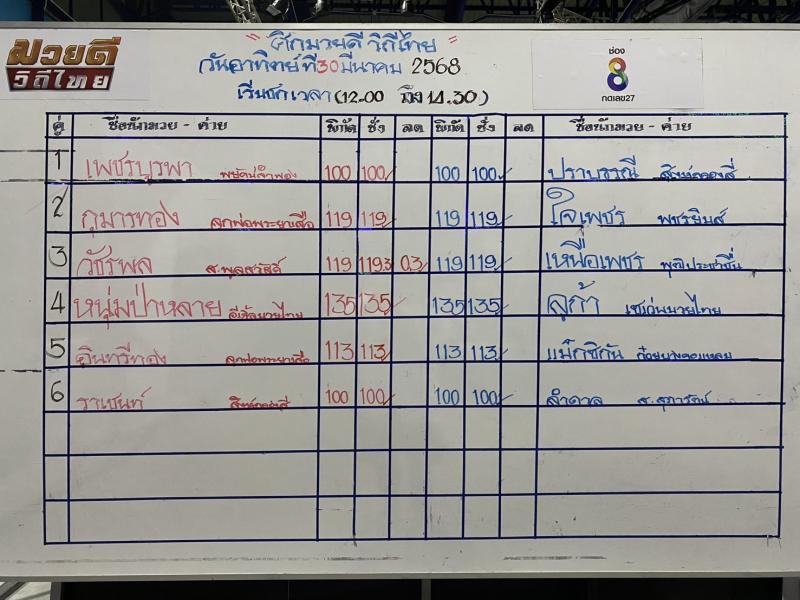 " ศึกมวยดี วิถีไทย "
มวยดี
วิถีไทย
วันอาทิตย์ที่ 30 มีนาคม 2568
เริ่มชกเวลา (12.00 ถึง 14.30)
ช่อง
8
กดเลข27
คู่ ชื่อนักมวย - ค่าย พิกัด ชั่ง ลด พิกัด ชั่ง ลด ชื่อนักมวย - ค่าย
1 เพชรบูรพา 100 100 100 100 ปราบธรณี สิงห์คลองสี่
2 กุมารทอง ลูกพ่อพระยาเสือ 119 119 119 119 ใจเพชร พชรยิมส์
3 วัชรพล ส.พูลสวัสดิ์ 119 119.3 0.3 119 119 เหนือเพชร
4 หนุ่มป่าหลาย อีเทิลมวยไทย 135 135 135 135 ลูก้า เซเว่นมวยไทย
5 อินทรีทอง ลูกพ่อพระยาเสือ 113 113 113 113 แม็กซิกัน
6 ราเชนท์ สิงห์คลองสี่ 100 100 100 100 ลำดาล ส.สุภารัตน์